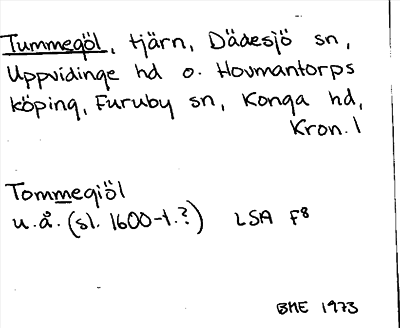 Tummegöl, tjärn, Dädesjö sn,
Uppvidinge hd o. Hovmantorps
köping, Furuby sn, Konga hd,
Kron. l
Tommegiöl
u.å. (sl. 1600-t.?) LSA F8
BME 1973